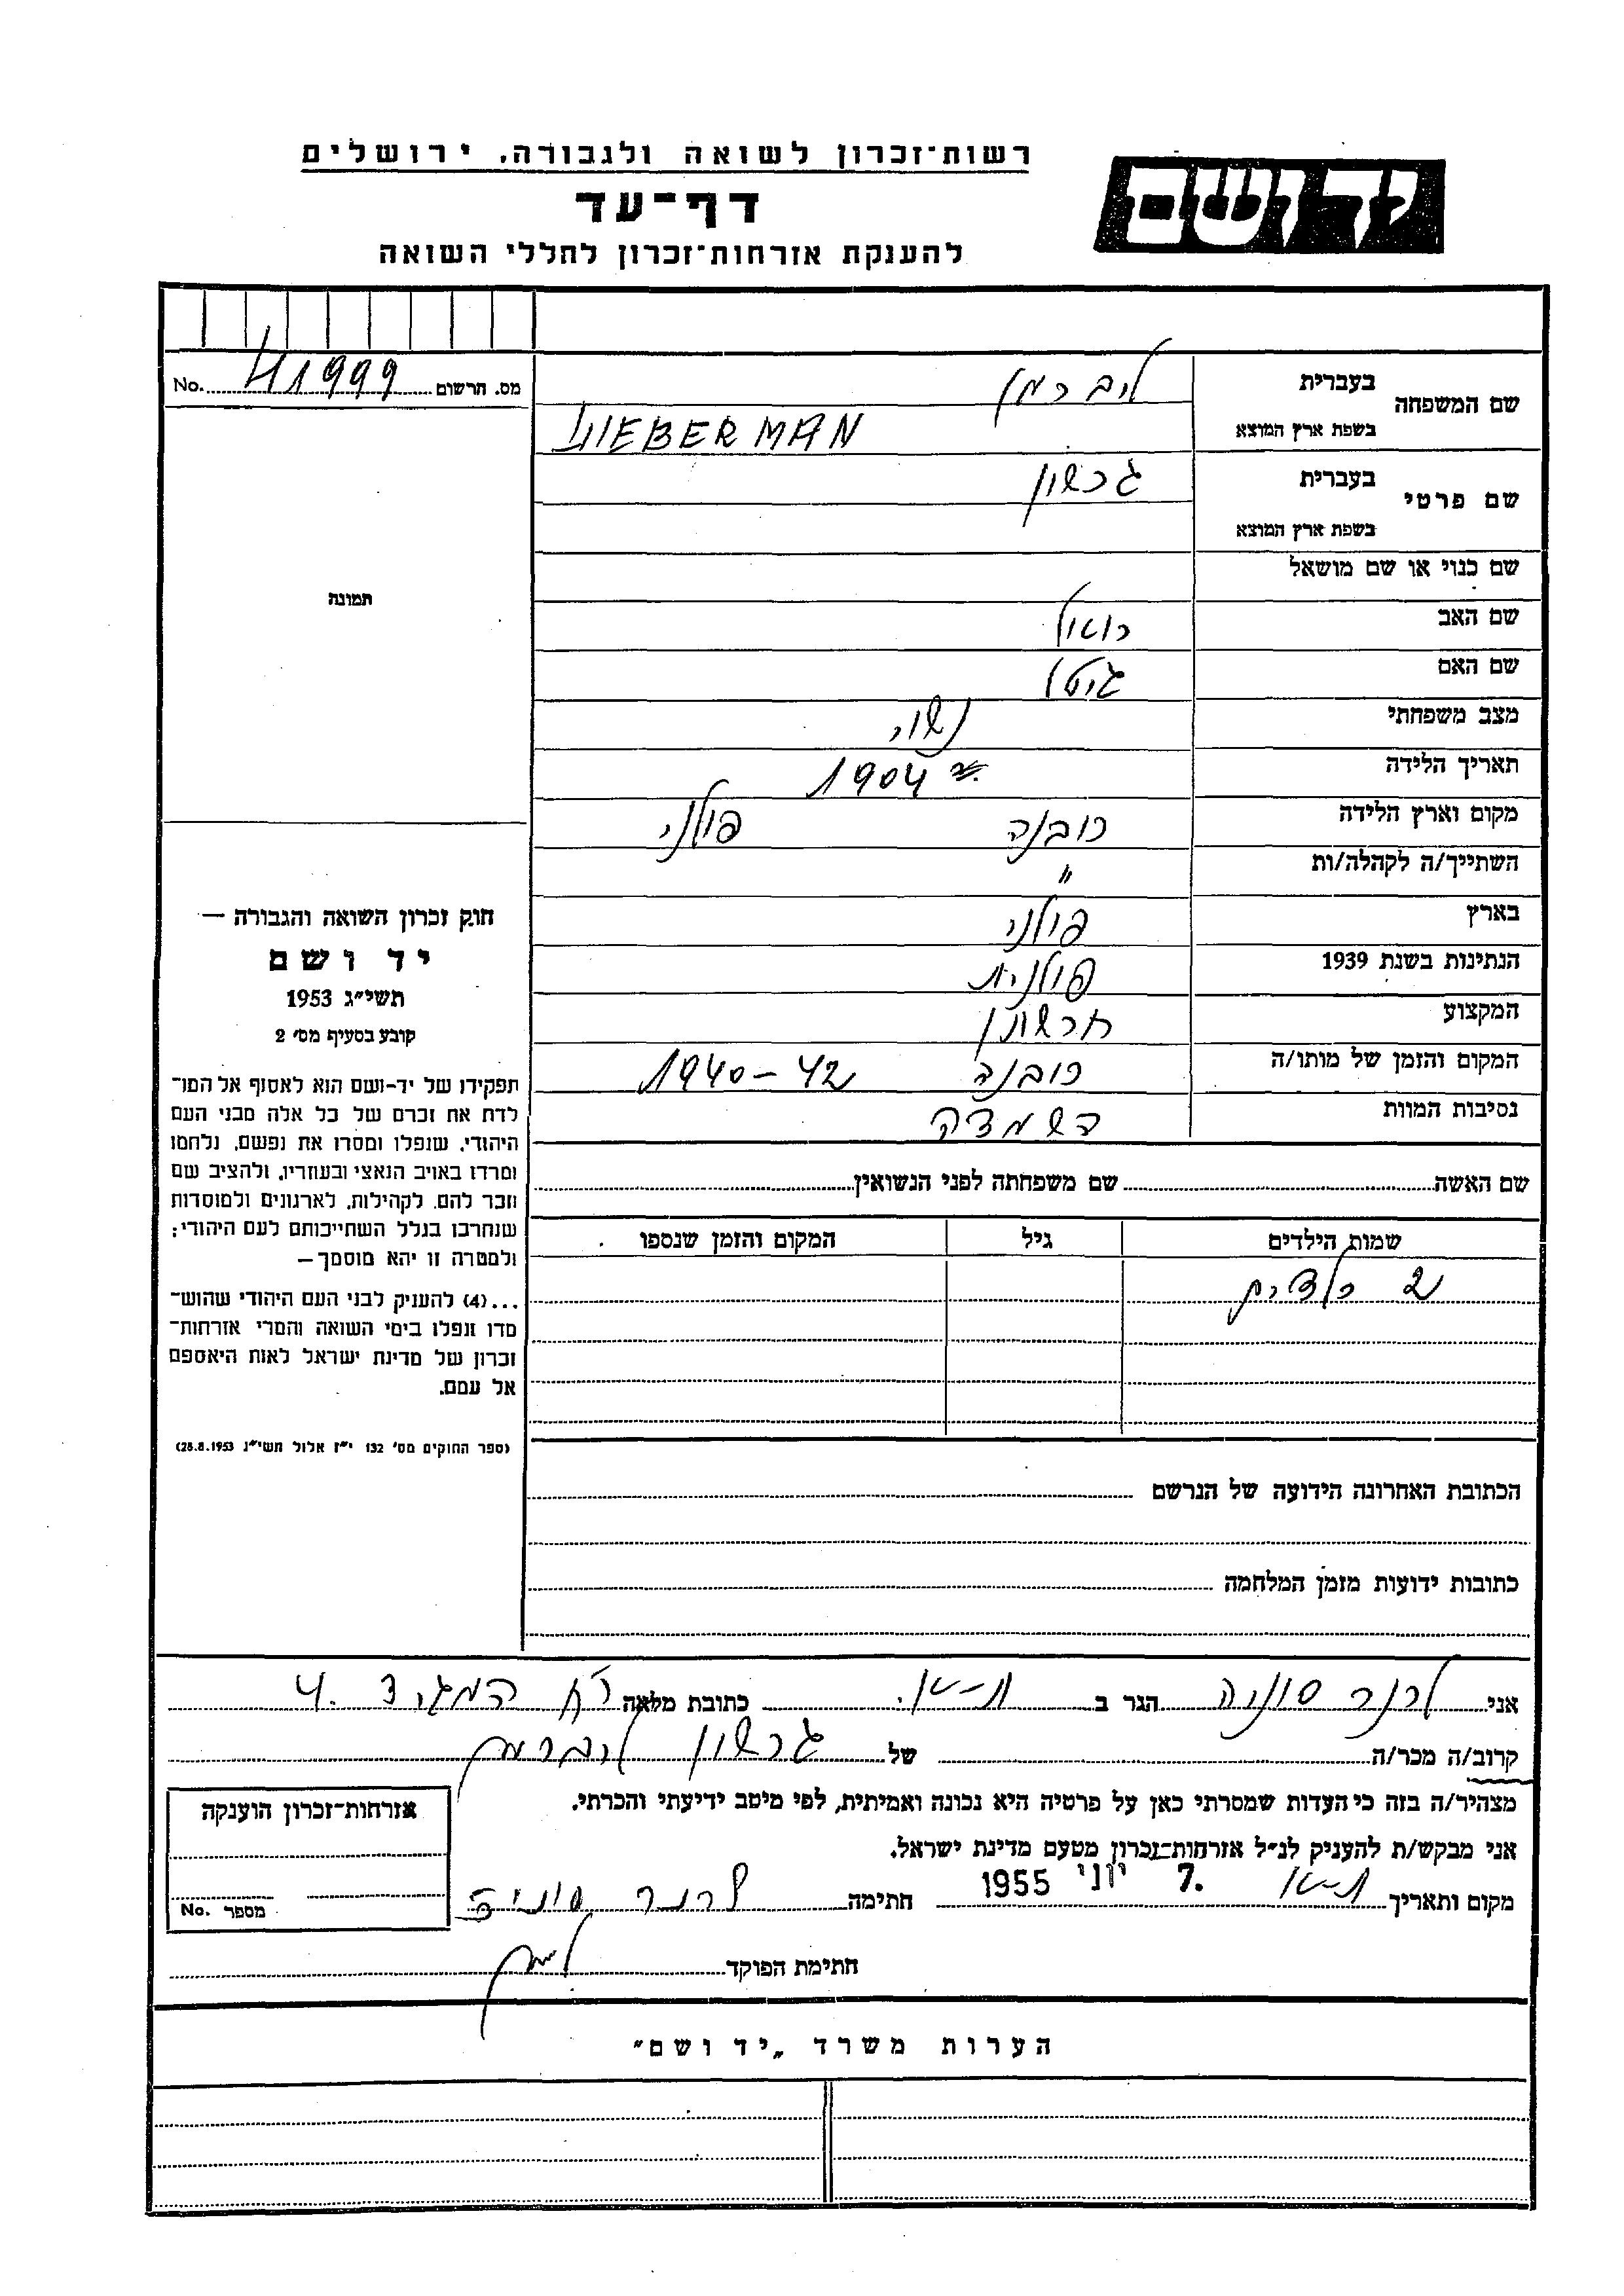 יד ושם
רשות־זכרון לשואה ולגבורה, ירושלים
דף־עד
להענקת אזרחות־זכרון לחללי השואה
מס. הרשום 41999 No.
שם המשפחה בעברית ליברמן
בשפת ארץ המוצא LIEBERMAN
שם פרטי בעברית גרשון
בשפת ארץ המוצא
שם כנוי או שם מושאל
שם האב
שם האם
מצב משפחתי נשוי
תאריך הלידה 1904
מקום וארץ הלידה רובנה פולני
השתייך/ה לקהלה/ות "
בארץ פולני
הנתינות בשנת 1939 פולנית
המקצוע
המקום והזמן של מותו/ה רובנה 1940-42
נסיבות המוות השמדה
שם האשה שם משפחתה לפני הנשואין
שמות הילדים גיל המקום והזמן שנספו
2 ילדים
הכתובת האחרונה הידועה של הנרשם
כתובות ידועות מזמן המלחמה
תמונה
חוק זכרון השואה והגבורה —
יד ושם
תשי״ג 1953
קובע בסעיף מס׳ 2
תפקידו של יד-ושם הוא לאסוף אל המו־
לדת את זכרם של כל אלה מבני העם
היהודי, שנפלו ומסרו את נפשם, נלחמו
ומרדו באויב הנאצי ובעוזריו, ולהציב שם
וזכר להם, לקהילות, לארגונים ולמוסדות
שנחרבו בגלל השתייכותם לעם היהודי;
ולמטרה זו יהא מוסמך —
...(4) להעניק לבני העם היהודי שהוש־
מדו ונפלו בימי השואה והמרי אזרחות־
זכרון של מדינת ישראל לאות היאספם
אל עמם.
(ספר החוקים מס׳ 132 י״ז אלול תשי״ג 28.8.1953)
אני לרנר סוניה הגר ב ת-א כתובת מלאה רח המגיד 4
קרוב/ה מכר/ה של גרשון ליברמן
מצהיר/ה בזה כי העדות שמסרתי כאן על פרטיה היא נכונה ואמיתית, לפי מיטב ידיעתי והכרתי.
אני מבקש/ת להעניק לנ״ל אזרחות־זכרון מטעם מדינת ישראל.
מקום ותאריך ת-א 7. יוני 1955 חתימה לרנר סוניה
חתימת הפוקד
אזרחות־זכרון הוענקה
מספר No.
הערות משרד „יד ושם״